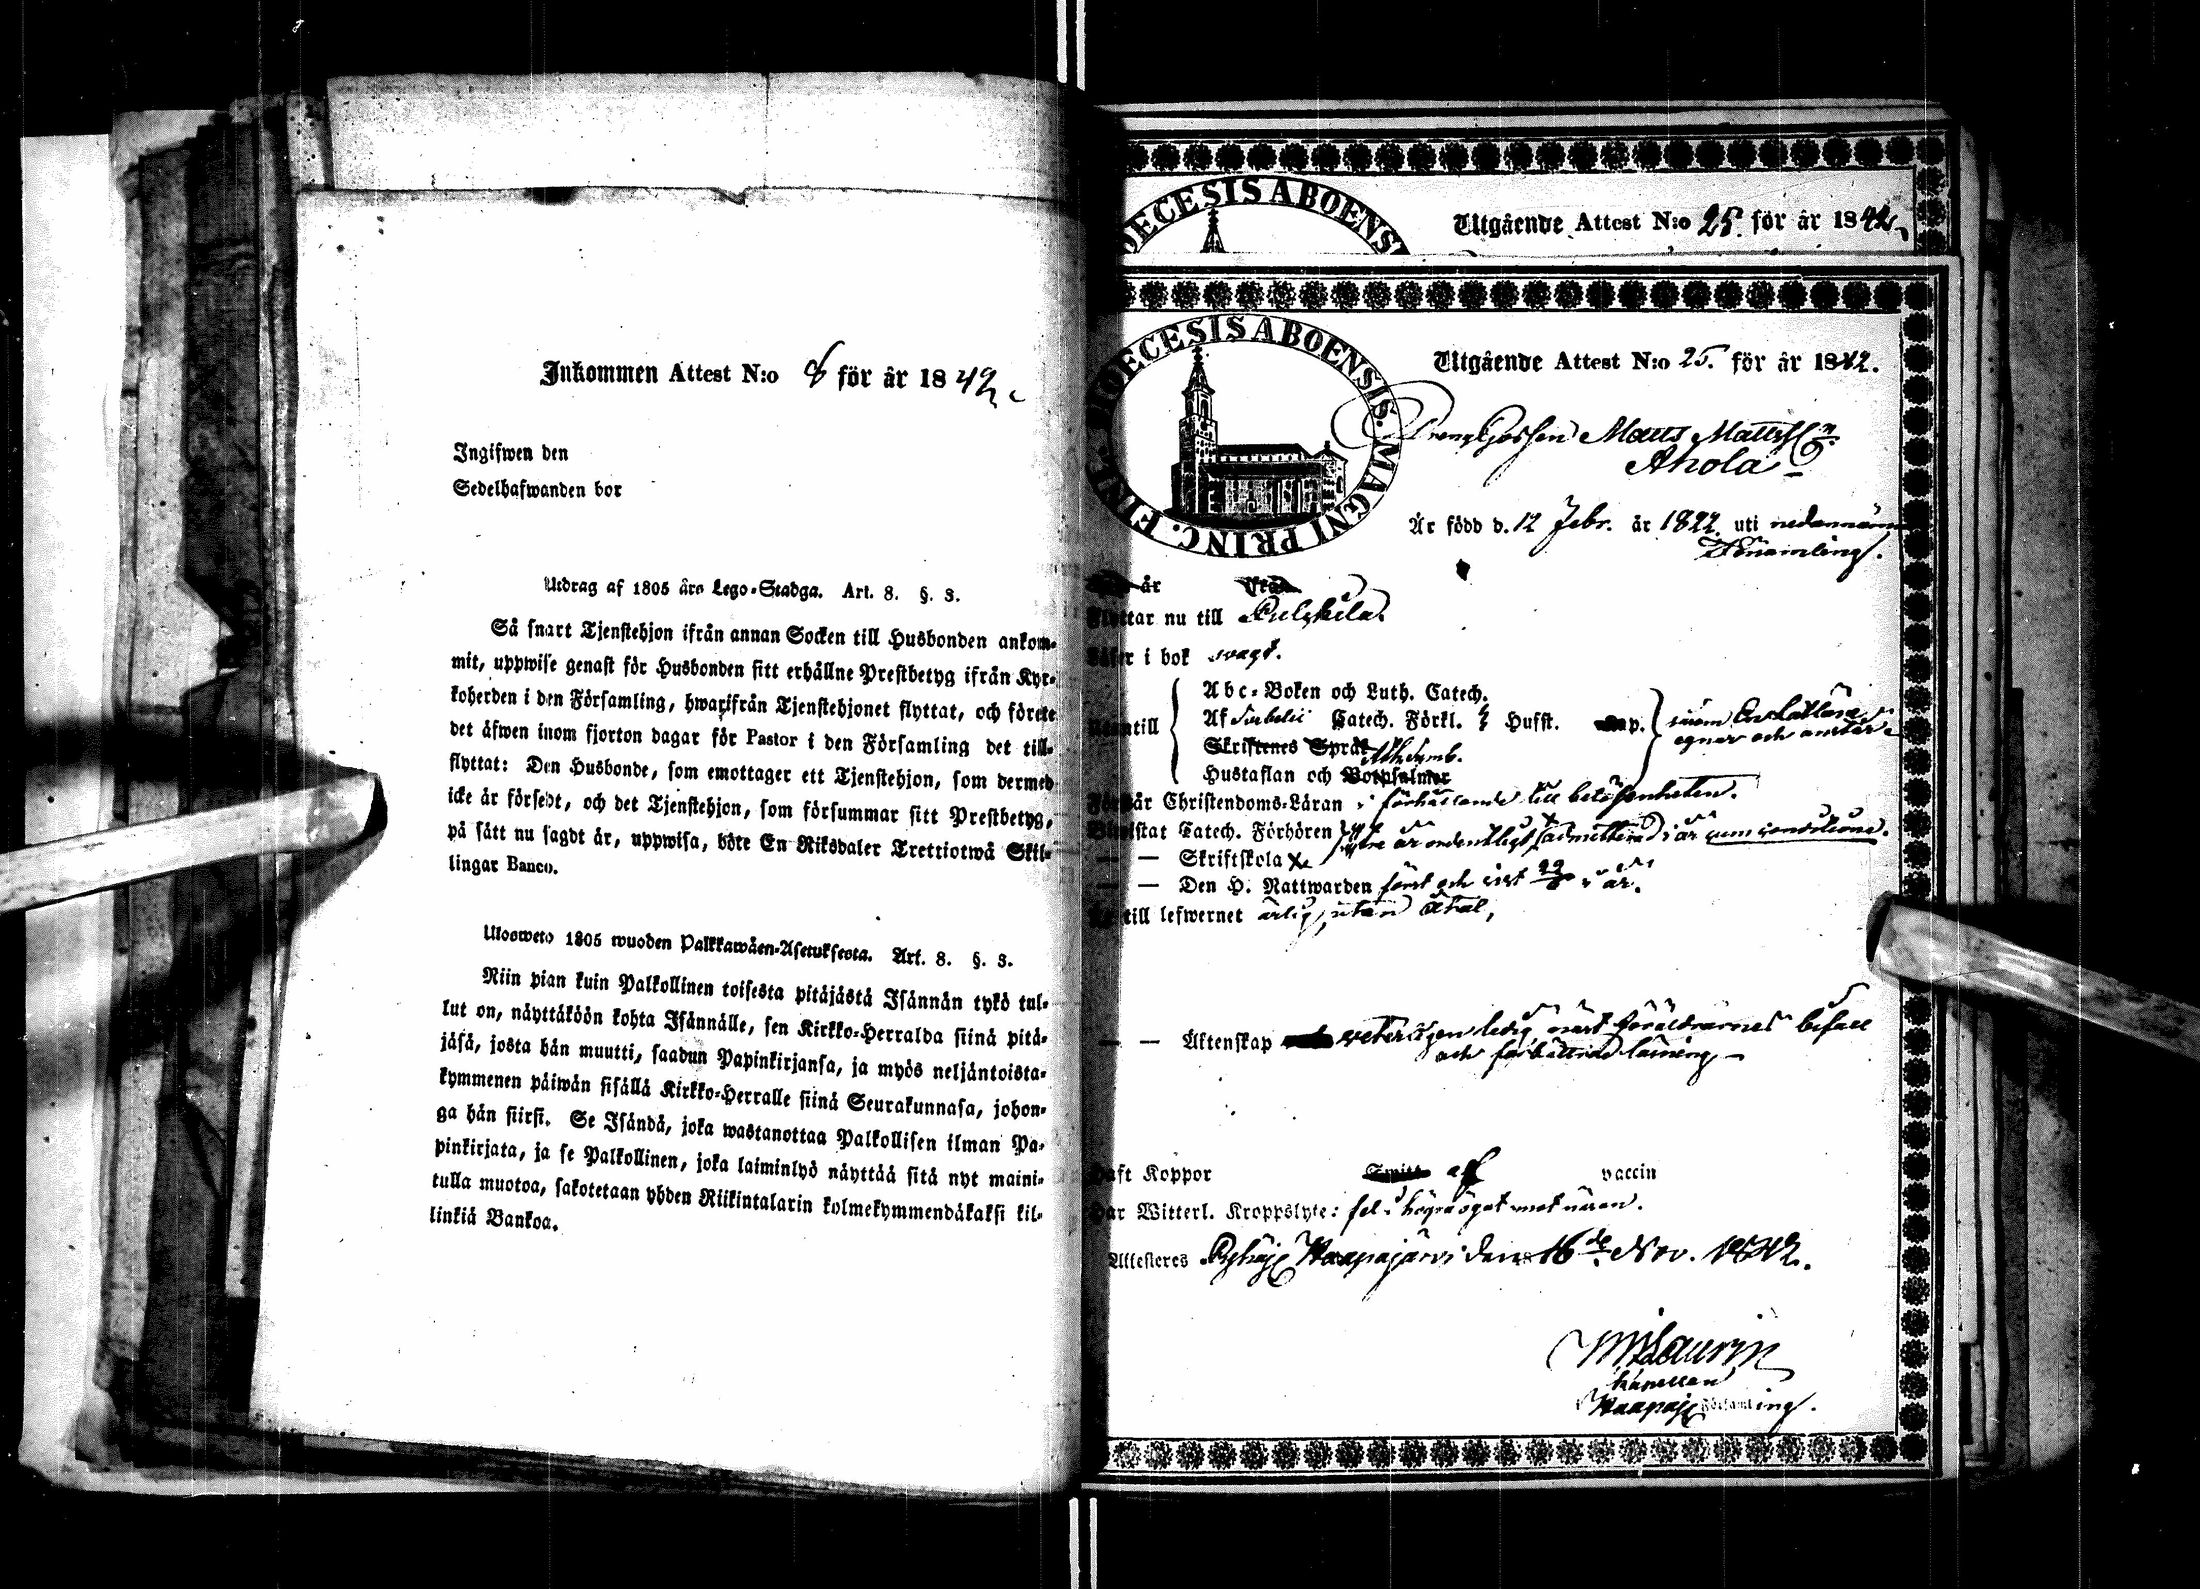 Inkommen Attest N:o 8 för år 1842.
Ingifwen den
Sedelhafwanden bor
Utdrag af 1805 års Lego-Stadga. Art. 8. §. 3.
Så snart Tjenstehjon ifrån annan Socken till Husbonden ankom-
mit, uppwise genast för Husbonden sitt erhållne Prestbetyg ifrån Kyr-
koherden i den Församling, hwarifrån Tjenstehjonet flyttat, och förete
det äfwen inom fjorton dagar för Pastor i den Församling det till-
flyttat: Den Husbonde, som emottager ett Tjenstehjon, som dermed
icke är försedt, och det Tjenstehjon, som försummar sitt Prestbetyg,
på sätt nu sagdt är, uppwisa, böte En Riksdaler Trettiotwå Skil-
lingar Banco.
Ulosweto 1805 wuoden Palkkawäen-Asetuksesta. Art. 8. §. 3.
Niin pian kuin Palkollinen toisesta pitäjästä Isännän tykö tul-
lut on, näyttäköön kohta Isännälle, sen Kirkko-Herralda siinä pitä-
jäsä, josta hän muutti, saadun Papinkirjansa, ja myös neljäntoista-
kymmenen päiwän sisällä Kirkko-Herralle siinä Seurakunnasa, johon-
ga hän siirsi. Se Isändä, joka wastanottaa Palkollisen ilman Pa-
pinkirjata, ja se Palkollinen, joka laiminlyö näyttää sitä nyt maini-
tulla muotoa, sakotetaan yhden Riikintalarin kolmekymmendäkaksi kil-
linkiä Bankoa.
DIOECESIS ABOENSIS
Utgående Attest N:o 25. för år 1842.
DIOECESIS ABOENSIS. MAGNI PRINC. FINL.
Utgående Attest N:o 25. för år 1842.
Drenggossen Matts Mattss:n
Ahola
Är född d. 12 Febr. år 1822 uti nedannämn
Församling.
år
Flyttar nu till Pulkkila.
Läser i bok svagt.
Utantill
Abc-Boken och Luth. Catech.
Af Svebelii Catech. Förkl. Husst. cap.
Skriftenes Språk
Ath. Symb.
Hustaflan och Botpsalmer
innom Enskildta
egnar och
Förstår Christendoms-Läran förhållande till
Bewistat Catech. Förhören är ordentligt, admitterad i år cum conditione.
— — Skriftskola
— — Den H. Nattwarden först och sist i år.
Är till lefwernet ärlig, utan åtal,
— — Äktenskap veterligen ledig, med föräldrarnes bifall
och förbättrad läsning. —
Haft Koppor af vaccin
Har Witterl. Kroppslyte: fel i högra ögat
Attesteres Pyhäj. Haapajärvi den 16de Nov. 1842.
Laurin
Kapellan
Haapaj. Församling.